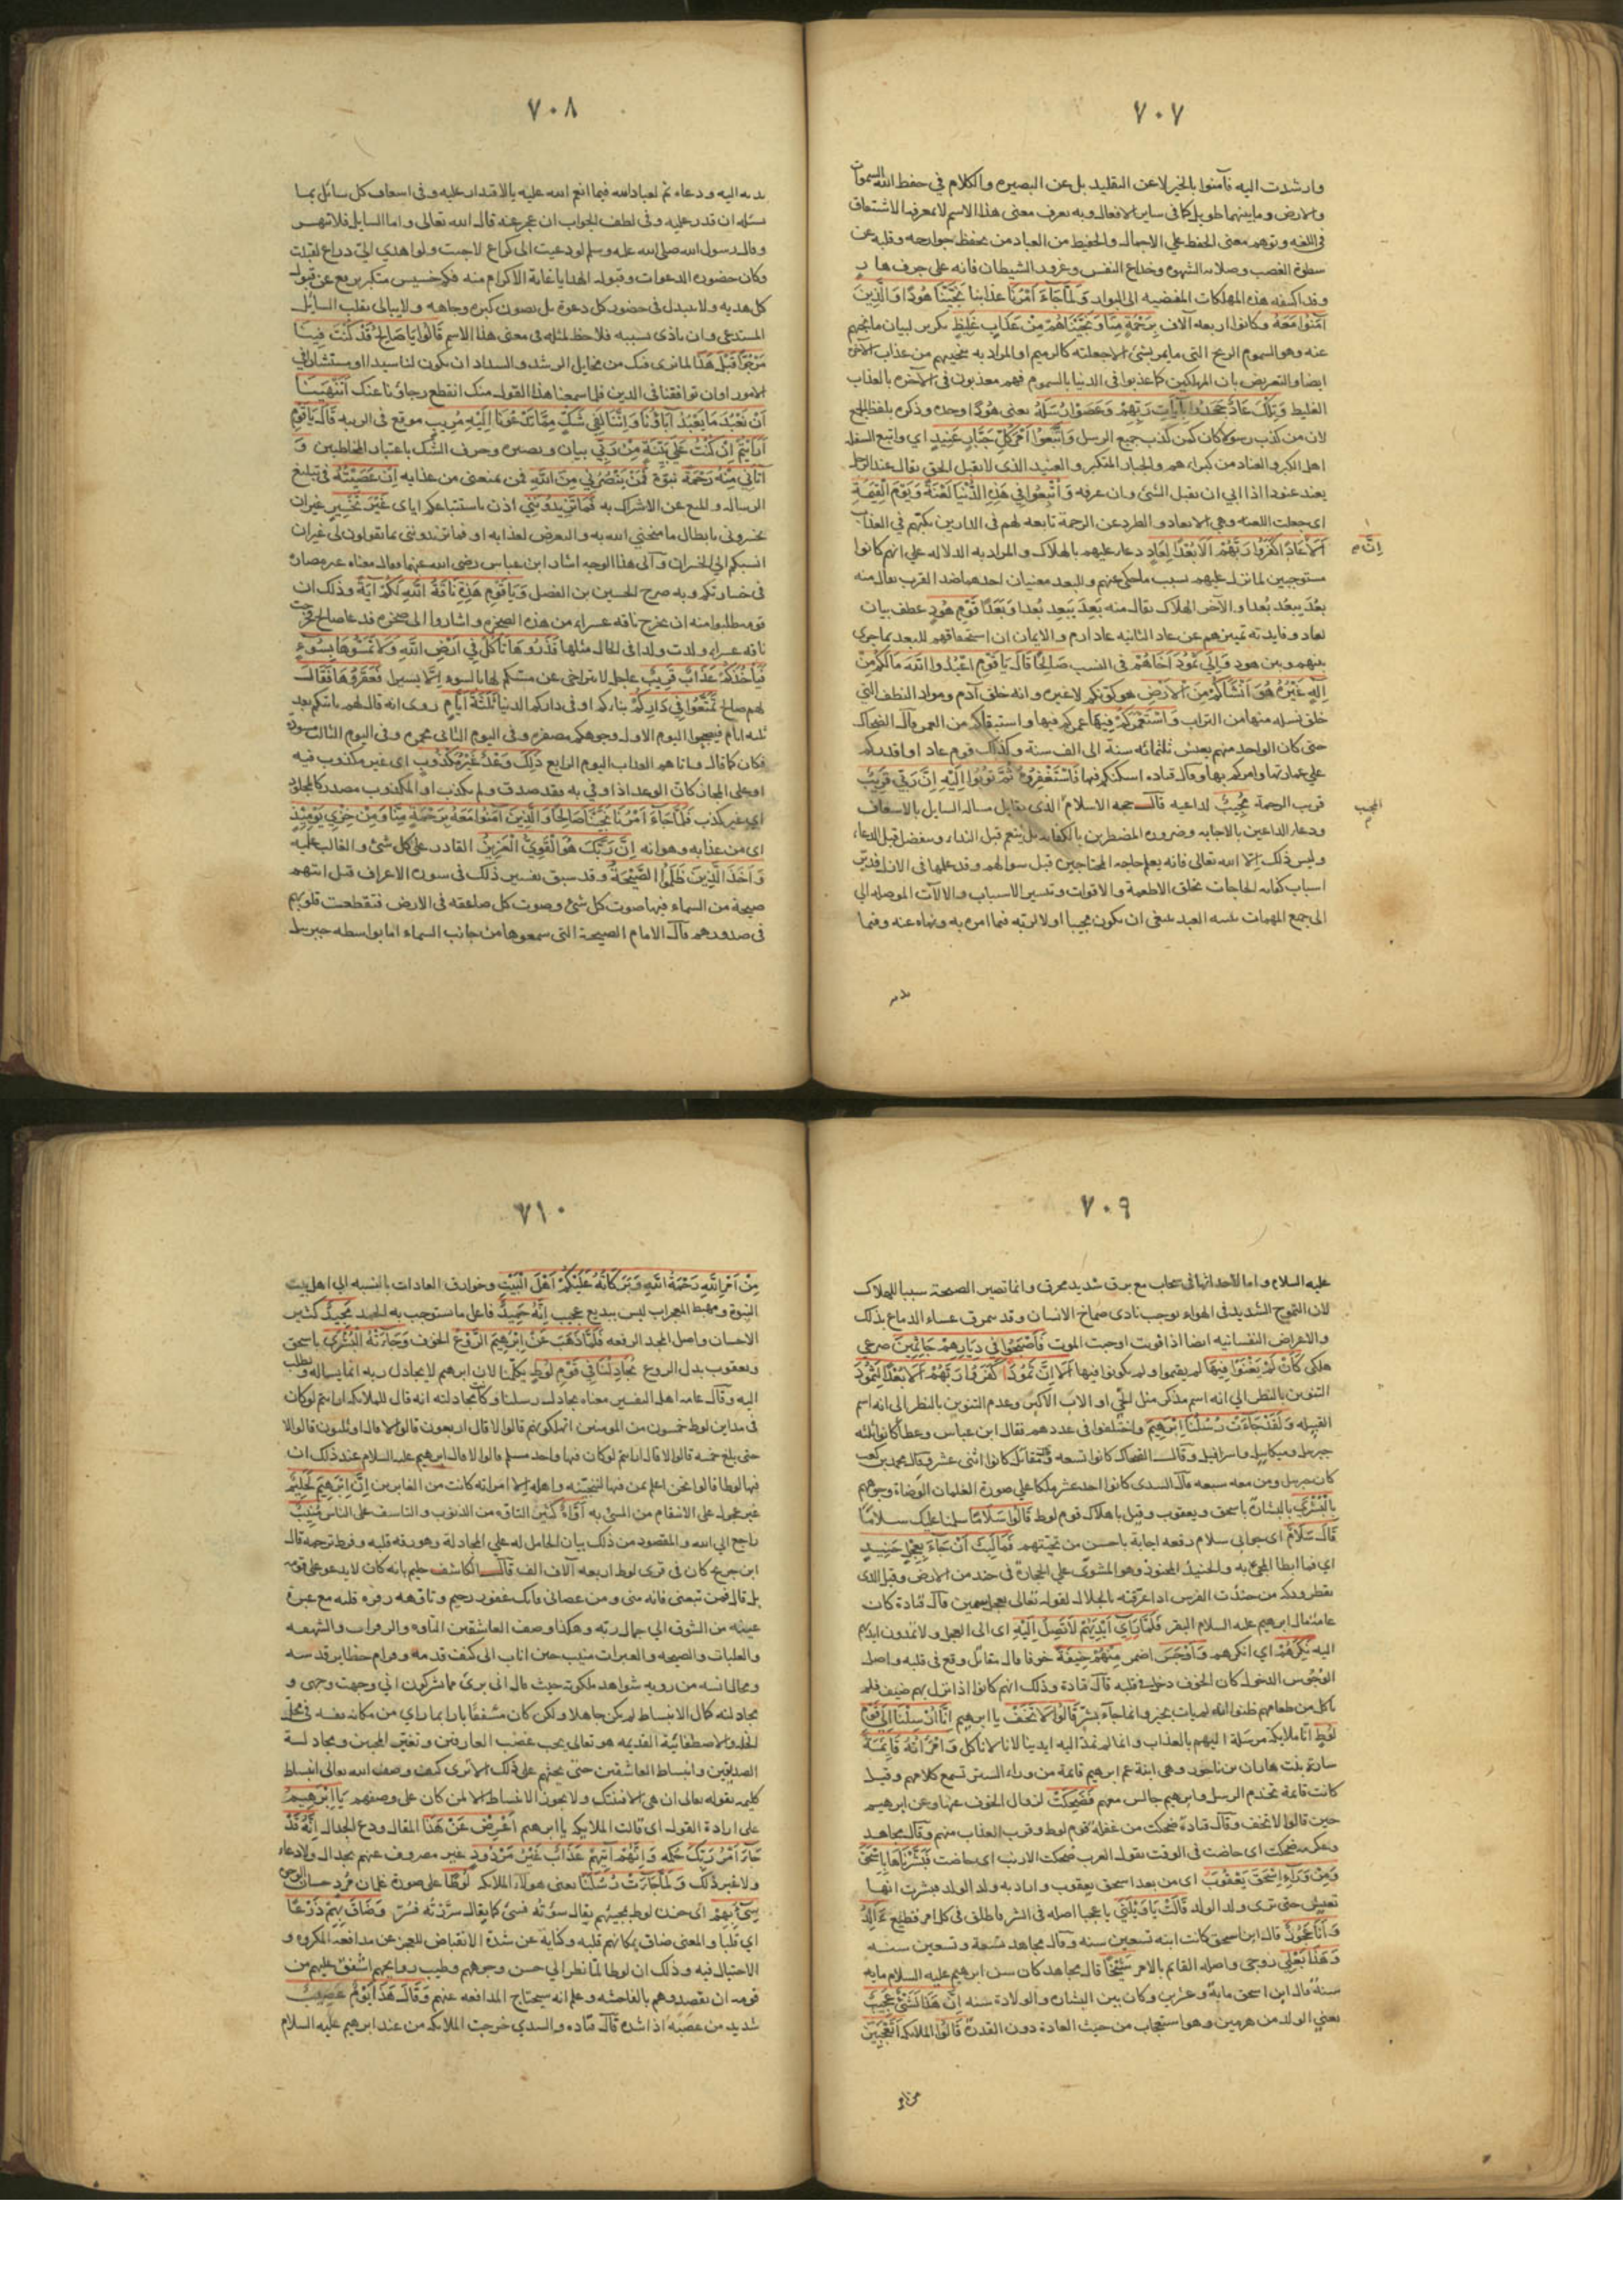 ٧٠٧
وارشدت اليه فآمنوا بالخبر لا عن التقليد بل عن البصيره والكلام في حفظ الله السموات
والارض وما بينهما طويل كما في ساير الافعال وبه يعرف معنى هذا الاسم لا بمعرفه الاشتقاق
في اللغه وتوهم معنى الحفظ على الاجمال والحفيظ من العباد من يحفظ جوارحه وقلبه عن
سطوة الغضب وصلابه الشهوه وخداع النفس وغرور الشيطان فانه على جرف هار
وقد اكتنفه هذه المهلكات المفضيه الى البوار وَلَمَّا جَاءَ اَمْرُنَا عذابنا نَجَّيْنَا هُودًا وَالَّذِينَ
آمَنُوا مَعَهُ وكانوا اربعه آلاف بِرَحْمَةٍ مِنَّا وَنَجَّيْنَاهُمْ مِنْ عَذَابٍ غَلِيظٍ تكرير لبيان ما نجاهم
عنه وهو السموم الريح التي ما يمر بشئ الا جعلته كالرميم او المراد به تنجيتهم من عذاب الآخرة
ايضا والتعريض بان المهلكين كما عذبوا في الدنيا بالسموم فهم معذبون في الآخره بالعذاب
الغليظ وَتِلْكَ عَادٌ جَحَدُوا بِآيَاتِ رَبِّهِمْ وَعَصَوْا رُسُلَهُ يعنى هُودًا وحده وذكره بلفظ الجمع
لان من كذب رسولا كان كمن كذب جميع الرسل وَاتَّبَعُوا اَمْرَ كُلِّ جَبَّارٍ عَنِيدٍ اي واتبع السفله
اهل الكبر والعناد من كبراءهم والجبار المتكبر والعنيد الذى لا يقبل الحق يقال عند الرجل
يعند عنودا اذا ابي ان يقبل الشئ وان عرفه وَاُتْبِعُوا فِي هَذِهِ الدُّنْيَا لَعْنَةً وَيَوْمَ الْقِيمَةِ
اى جعلت اللعنه وهى الابعاد والطرد عن الرحمة تابعه لهم فى الدارين تكبهم في العذاب
اَلَا عَادًا كَفَرُوا رَبَّهُمْ اَلَا بُعْدًا لِعَادٍ دعاء عليهم بالهلاك والمراد به الدلاله على انهم كانوا
اِنَّ
مستوجبين لما نزل عليهم بسبب ما حكى عنهم وللبعد معنيان احدهما ضد القرب يقال منه
بعُدَ يبعُد بُعدا والآخر الهلاك يقال منه بَعِدَ يبعد بُعدا وبَعَدًا قَوْمِ هُودٍ عطف بيان
لعاد وفايدته تميزهم عن عاد الثانيه عاد ارم والايمان ان استحقاقهم للبعد بما جرى
بينهم وبين هود وَاِلَى ثَمُودَ اَخَاهُمْ فى النسب صَالِحًا قَالَ يَا قَوْمِ اعْبُدُوا اللهَ مَا لَكُمْ مِنْ
اِلَهٍ غَيْرُهُ هُوَ اَنْشَاَكُمْ مِنَ الْاَرْضِ هو كونكم لا غيره وانه خلق آدم ومواد النطف التي
خلق نسله منها من التراب وَاسْتَعْمَرَكُمْ فِيهَا عمركم فيها واستبقاكم من العمر قال الضحاك
حتى كان الواحد منهم يعيش ثلثمائه سنة الى الف سنة وكذلك قوم عاد او اقدركم
على عمارتها وامركم بها وقال قتاده اسكنكم فيها فَاسْتَغْفِرُوهُ ثُمَّ تُوبُوا اِلَيْهِ اِنَّ رَبِّي قَرِيبٌ
قريب الرحمة مُجِيبٌ لداعيه قال حجه الاسلام الذى يقابل مساله السايل بالاسعاف
المجيب
ودعاء الداعين بالاجابه وضروره المضطرين بالكفايه بل ينعم قبل النداء ويتفضل قبل الدعاء
وليس ذلك الا لله تعالى فانه يعلم حاجه المحتاجين قبل سوالهم وقد علمها في الازل فدبر
اسباب كفايه الحاجات بخلق الاطعمة والاقوات وتيسير الاسباب والالآت الموصله الى
الى جمع المهمات تنبيه العبد ينبغى ان يكون مجيبا اولا لربه فيما امره به ونهاه عنه وفيما
٧٠٨
ندبه اليه ودعاه ثم لعباد الله فيما انعم الله عليه بالاقتدار عليه وفى اسعاف كل سائل بما
يسئله ان قدر عليه وفى لطف الجواب ان عجز عنه قال الله تعالى واما السايل فلا تنهر
وقال رسول الله صلى الله عليه وسلم لو دعيت الى كراع لاجبت ولو اهدي الىّ ذراع لقبلت
وكان حضوره الدعوات وقبوله الهدايا غاية الاكرام منه فكم خسيس متكبر يترفع عن قبول
كل هديه ولا يتبدل فى حضور كل دعوة بل يصون كبره وجاهه ولا يبالى بقلب السائل
المستدعي وان تاذى بسببه فلا حظ لمثله في معنى هذا الاسم قَالُوا يَا صَالِحُ قَدْ كُنْتَ فِينَا
مَرْجُوًّا قَبْلَ هَذَا لما نرى فيك من مخايل الرشد والسداد ان تكون لنا سيدا او مستشارا في
الامور او ان توافقنا فى الدين فلما سمعنا هذا القول منك انقطع رجاؤنا عنك اَتَنْهَينَا
اَنْ نَعْبُدَ مَا يَعْبُدُ آبَاؤُنَا وَاِنَّنَا لَفِي شَكٍّ مِمَّا تَدْعُونَا اِلَيْهِ مُرِيبٍ موقع فى الريبه قَالَ يَا قَوْمِ
اَرَاَيْتُمْ اِنْ كُنْتُ عَلَى بَيِّنَةٍ مِنْ رَبِّي بيان وبصيره وحرف الشك باعتبار المخاطبين وَ
آتَانِي مِنْهُ رَحْمَةً نبوّة فَمَنْ يَنْصُرُنِي مِنَ اللهِ فمن يمنعنى من عذابه اِنْ عَصَيْتُهُ فى تبليغ
الرساله والمنع عن الاشراك به فَمَا تَزِيدُونَنِي اذن باستتباعكم اياى غَيْرَ تَخْسِيرٍ غير ان
تخسرونى بابطال ما منحنى الله به والتعرض لعذابه او فما تزيدوننى بما تقولون لى غير ان
انسبكم الى الخسران وآلى هذا الوجه اشار ابن عباس رضى الله عنهما وقال معناه غير مصابره
فى خسارتكم وبه صرح الحسين بن الفضل وَيَا قَوْمِ هَذِهِ نَاقَةُ اللهِ لَكُمْ آيَةً وذلك ان
قومه طلبوا منه ان يخرج ناقه عشراء من هذه الصخره واشاروا الى صخره فدعا صالح فخرجت
ناقه عشراء ولدت ولدا فى الحال مثلها فَذَرُوهَا تَاْكُلْ فِي اَرْضِ اللهِ وَلَا تَمَسُّوهَا بِسُوءٍ
فَيَاْخُذَكُمْ عَذَابٌ قَرِيبٌ عاجل لا يتراخى عن مسكم لها بالسوء الا يسيرا فَعَقَرُوهَا فَقَالَ
لهم صالح تَمَتَّعُوا فِي دَارِكُمْ بناءكم او فى داركم الدنيا ثَلثَةَ اَيَّامٍ روى انه قال لهم ياتيكم بعد
ثلثه ايام فتصبحوا اليوم الاول وجوهكم مصفره وفى اليوم الثانى محمره وفى اليوم الثالث مسودة
فكان كما قال واتاهم العذاب اليوم الرابع ذَلِكَ وَعْدٌ غَيْرُ مَكْذُوبٍ اى غير مكذوب فيه
او على المجاز كان الوعد اذا وفي به فقد صدق ولم يكذب او المكذوب مصدر كالمجلود
اى غير كذب فَلَمَّا جَاءَ اَمْرُنَا نَجَّيْنَا صَالِحًا وَالَّذِينَ آمَنُوا مَعَهُ بِرَحْمَةٍ مِنَّا وَمِنْ خِزْيِ يَوْمِئِذٍ
اى من عذابه وهوانه اِنَّ رَبَّكَ هُوَ الْقَوِيُّ الْعَزِيزُ القادر على كل شئ والغالب عليه
وَاَخَذَ الَّذِينَ ظَلَمُوا الصَّيْحَةُ وقد سبق تفسير ذلك فى سوره الاعراف قيل اتتهم
صيحة من السماء فيها صوت كل شئ وصوت كل صاعقه فى الارض فتقطعت قلوبهم
فى صدورهم قال الامام الصيحة التى سمعوها من جانب السماء اما بواسطه جبريل
٧٠٩
عليه السلام واما لاحداثها فى سحاب مع برق شديد محرق وانما تصير الصيحة سببا للهلاك
لان التموج الشديد فى الهواء يوجب تاذى صماخ الانسان وقد يتمزق غشاء الدماغ بذلك
والاعراض النفسانيه ايضا اذا قويت اوجبت الموت فَاَصْبَحُوا فِي دِيَارِهِمْ جَاثِمِينَ صرعى
هلكى كَاَنْ لَمْ يَغْنَوْا فِيهَا لم يقيموا ولم يكونوا فيها اَلَا اِنَّ ثَمُودًا كَفَرُوا رَبَّهُمْ اَلَا بُعْدًا لِثَمُودَ
التنوين بالنظر الى انه اسم مذكر مثل الحىّ او الاب الاكبر وعدم التنوين بالنظر الى انه اسم
القبيله وَلَقَدْ جَاءَتْ رُسُلُنَا اِبْرهِيمَ واختلفوا في عددهم فقال ابن عباس وعطا كانوا ثلثه
جبريل وميكاييل واسرافيل وقال الضحاك كانوا تسعه وقال مقاتل كانوا اثنى عشر وقال محمد بن كعب
كان جبريل ومن معه سبعه قال السدى كانوا احد عشر ملكا على صورة الغلمان الوضاة وجوههم
بِالْبُشْرَى بالبشارة باسحق ويعقوب وقيل باهلاك قوم لوط قَالُوا سَلَامًا سلمنا عليك سلامًا
قَالَ سَلَامٌ اى جوابى سلام رفعه اجابة باحسن من تحيتهم فَمَا لَبِثَ اَنْ جَاءَ بِعِجْلٍ حَنِيذٍ
اي فما ابطا المجئ به والحنيذ المحنوذ وهو المشوى على الحجارة فى خد من الارض وقيل الذى
يقطر ودكه من حنذت الفرس اذا عرقته بالجلال لقوله تعالى بعجل سمين قال قتادة كان
عامة مال ابرهيم عليه السلام البقر فَلَمَّا رَاَى اَيْدِيَهُمْ لَا تَصِلُ اِلَيْهِ اى الى العجل ولا يمدون ايديهم
اليه نَكِرَهُمْ اي انكرهم وَاَوْجَسَ اضمر مِنْهُمْ خِيفَةً خوفا قال مقاتل وقع فى قلبه واصل
الوجوس الدخول كان الخوف دخل فى قلبه قال قتادة وذلك انهم كانوا اذا نزل بهم ضيف فلم
ياكل من طعامهم ظنوا انه لم يات بخير وانما جاء بشرّ قَالُوا لَا تَخَفْ يا ابرهيم اِنَّا اُرْسِلْنَا اِلَى قَوْمِ
لُوطٍ انا ملايكة مرسلة اليهم بالعذاب وانما لم نمد اليه ايدينا لانا لا ناكل وَامْرَاَتُهُ قَائِمَةٌ
سارة بنت هاران بن ناحور وهى ابنة عم ابرهيم قائمة من وراء الستر تسمع كلامهم وقيل
كانت قائمة تخدم الرسل وابرهيم جالس معهم فَضَحِكَتْ لزوال الخوف عنها وعن ابرهيم
حين قالوا لا تخف وقال قتادة ضحكت من غفلة قوم لوط وقرب العذاب منهم وقال مجاهد
وعكرمه ضحكت اى حاضت فى الوقت يقول العرب ضحكت الارنب اى حاضت فَبَشَّرْنَاهَا بِاِسْحقَ
وَمِنْ وَرَاءِ اِسْحقَ يَعْقُوبَ اى من بعد اسحق يعقوب واراد به ولد الولد فبشرت انها
تعيش حتى ترى ولد الولد قَالَتْ يَا وَيْلَتَى يا عجبا اصله فى الشر فاطلق فى كل امر فظيع ءَاَلِدُ
وَاَنَا عَجُوزٌ قال ابن اسحق كانت ابنه تسعين سنه وقال مجاهد تسعة وتسعين سنه
وَهَذَا بَعْلِي زوجى واصله القائم بالامر شَيْخًا قال مجاهد كان سن ابرهيم عليه السلام مايه
سنة قال ابن اسحق مايه وعشرين وكان بين البشارة والولادة سنه اِنَّ هَذَا لَشَيْءٌ عَجِيبٌ
يعني الولد من هرمين وهو استعجاب من حيث العادة دون القدرة قَالُوا الملايكه اَتَعْجَبِينَ
٧١٠
مِنْ اَمْرِ اللهِ رَحْمَةُ اللهِ وَبَرَكَاتُهُ عَلَيْكُمْ اَهْلَ الْبَيْتِ وخوارق العادات بالنسبه الى اهل بيت
النبوة ومهبط المعجزات ليس ببديع عجيب اِنَّهُ حَمِيدٌ فاعل ما يستوجب به الحمد مَجِيدٌ كثير
الاحسان واصل المجد الرفعه فَلَمَّا ذَهَبَ عَنْ اِبْرهِيمَ الرَّوْعُ الخوف وَجَاءَتْهُ الْبُشْرَى باسحق
ويعقوب بدل الروع يُجَادِلُنَا فِي قَوْمِ لُوطٍ يكلمنا لان ابرهيم لا يجادل ربه انما يساله ويطلب
اليه وقال عامه اهل التفسير معناه يجادل رسلنا وكان مجادلته انه قال للملايكه ارايتم لو كان
فى مداين لوط خمسون من المومنين اتهلكونهم قالوا لا قال اربعون قالوا لا قال او ثلثون قالوا لا
حتى بلغ خمسه قالوا لا قال ارايتم لو كان فيها واحد مسلم قالوا لا قال ابرهيم عليه السلام عند ذلك ان
فيها لوطا قالوا نحن اعلم بمن فيها لننجينه واهله الا امراته كانت من الغابرين اِنَّ اِبْرهِيمَ لَحَلِيمٌ
غير عجول على الانتقام من المسئ به اَوَّاهٌ كثير التاوه من الذنوب والتاسف على الناس مُنِيبٌ
راجع الى الله والمقصود من ذلك بيان الحامل له على المجادلة وهو رقه قلبه وفرط ترحمه قال
ابن جريج كان فى قرى لوط اربعه آلاف الف قال الكاشف حليم بانه كان لا يدعو على قومه
بل قال فمن تبعنى فانه منى ومن عصانى فانك غفور رحيم وتاوهه زفره قلبه مع عبرة
عينيه من الشوق الى جمال ربه وهكذا وصف العاشقين التاوه والزفرات والشهقه
والغلبات والصيحه والعبرات منيب حين اناب الى كشف قدمه وهام خطاب قدسه
ومحالاته من رويه شواهد ملكوته حيث قال انى برىء مما تشركون انى وجهت وجهى و
مجادلته كمال الانبساط لم يكن جاهلا ولكن كان مشفقًا بارا بما راى من مكانه نفسه فى محل
الخله والاصطفائية القديمه هو تعالى يحب غضب العارفين وتغير المحبين ومجادلة
الصديقين وانبساط العاشقين حتى يحثهم على ذلك الا ترى كيف وصف الله تعالى انبساط
كليمه بقوله تعالى ان هى الا فتنتك ولا يجوز الانبساط الا لمن كان على وصفهم يَا اِبْرهِيمُ
على ارادة القول اى قالت الملايكه يا ابرهيم اَعْرِضْ عَنْ هَذَا المقال ودع الجدال اِنَّهُ قَدْ
جَاءَ اَمْرُ رَبِّكَ حكمه وَاِنَّهُمْ آتِيهِمْ عَذَابٌ غَيْرُ مَرْدُودٍ غير مصروف عنهم بجدال ولا دعاء
ولا غير ذلك وَلَمَّا جَاءَتْ رُسُلُنَا يعنى هولاء الملايكه لُوطًا على صورة غلمان مُرد حسان الوجوه
سِيءَ بِهِمْ اى حزن لوط بمجيئهم يقال سؤته فسئ كما يقال سررته فسُرّ وَضَاقَ بِهِمْ ذَرْعًا
اي قلبا والمعنى ضاق بمكانهم قلبه وكناية عن شدة الانقباض للعجز عن مدافعه المكروه و
الاحتيال فيه وذلك ان لوطا لما نظر الى حسن وجوههم وطيب روايحهم اشفق عليهم من
قومه ان يقصدوهم بالفاحشه وعلم انه سيحتاج المدافعه عنهم وَقَالَ هَذَا يَوْمٌ عَصِيبٌ
شديد من عصبه اذا شده قال قتاده والسدي خرجت الملايكه من عند ابرهيم عليه السلام